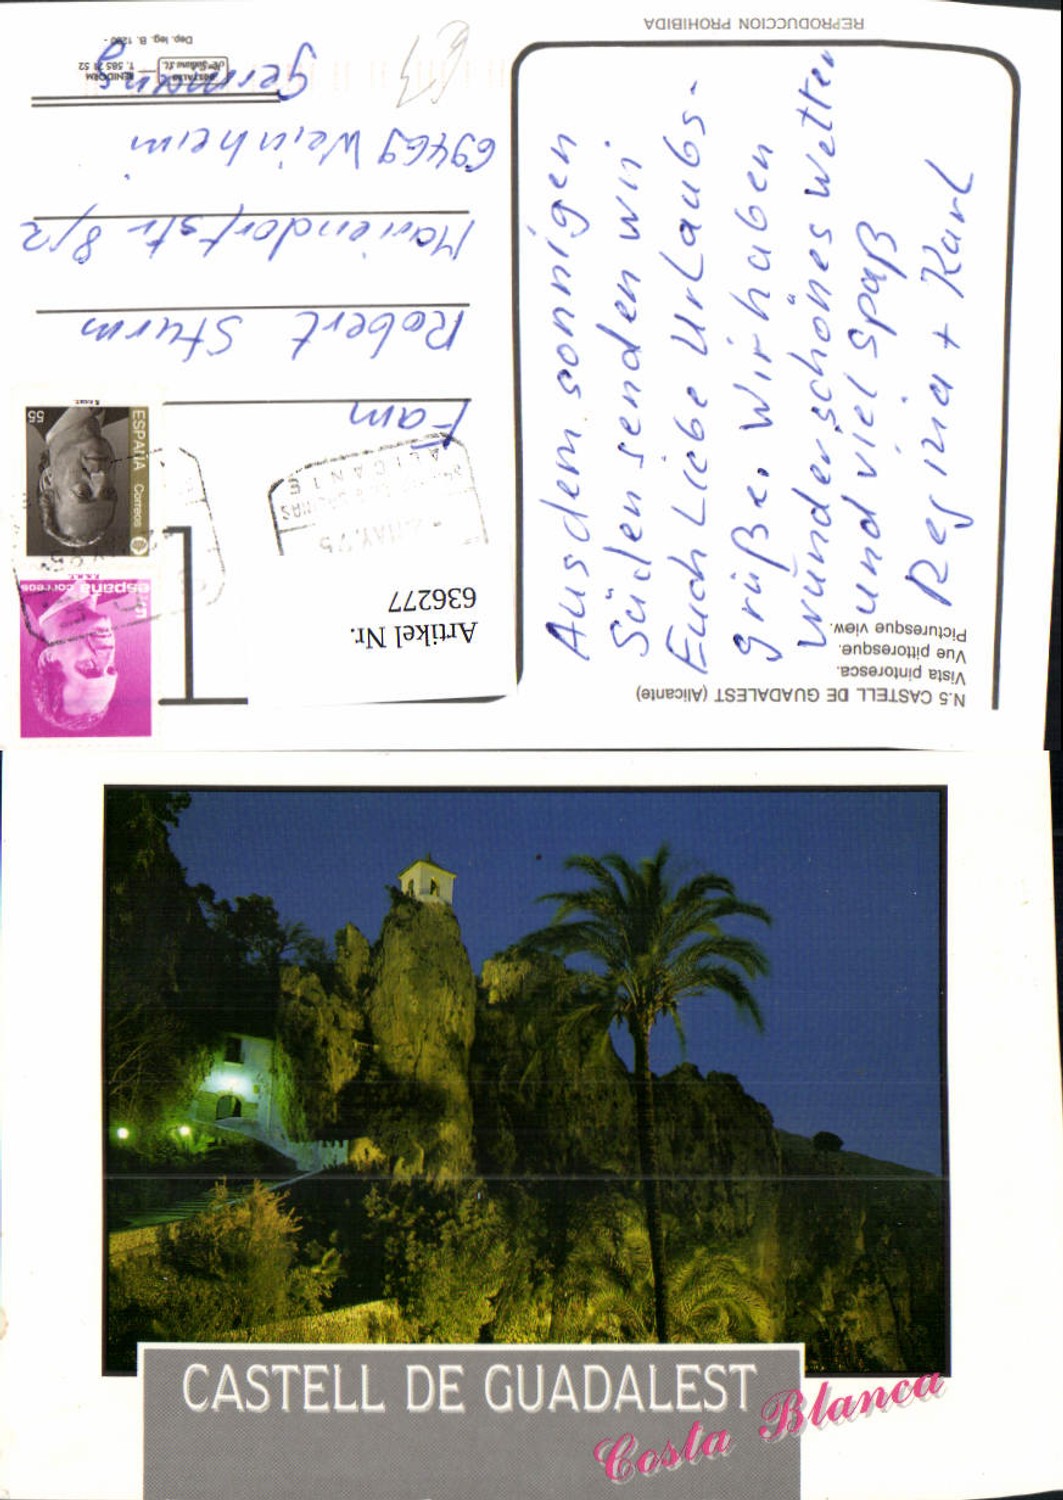 N.5 CASTELL DE GUADALEST (Alicante)
Vista pintoresca.
Vue pittoresque.
Picturesque view.
Aus dem sonnigen
Süden senden wir
Euch Liebe Urlaubs-
grüße. Wir haben
wunderschönes Wetter
und viel Spaß
Regina + Karl
REPRODUCCION PROHIBIDA
Artikel Nr.
636277
españa correos
ESPAÑA Correos
55
ALICANTE
Fam
Robert Sturm
Mariendorfstr 8/2
69469 Weinheim
Germany
BENIDORM
Dep. leg. B.
CASTELL DE GUADALEST
Costa Blanca